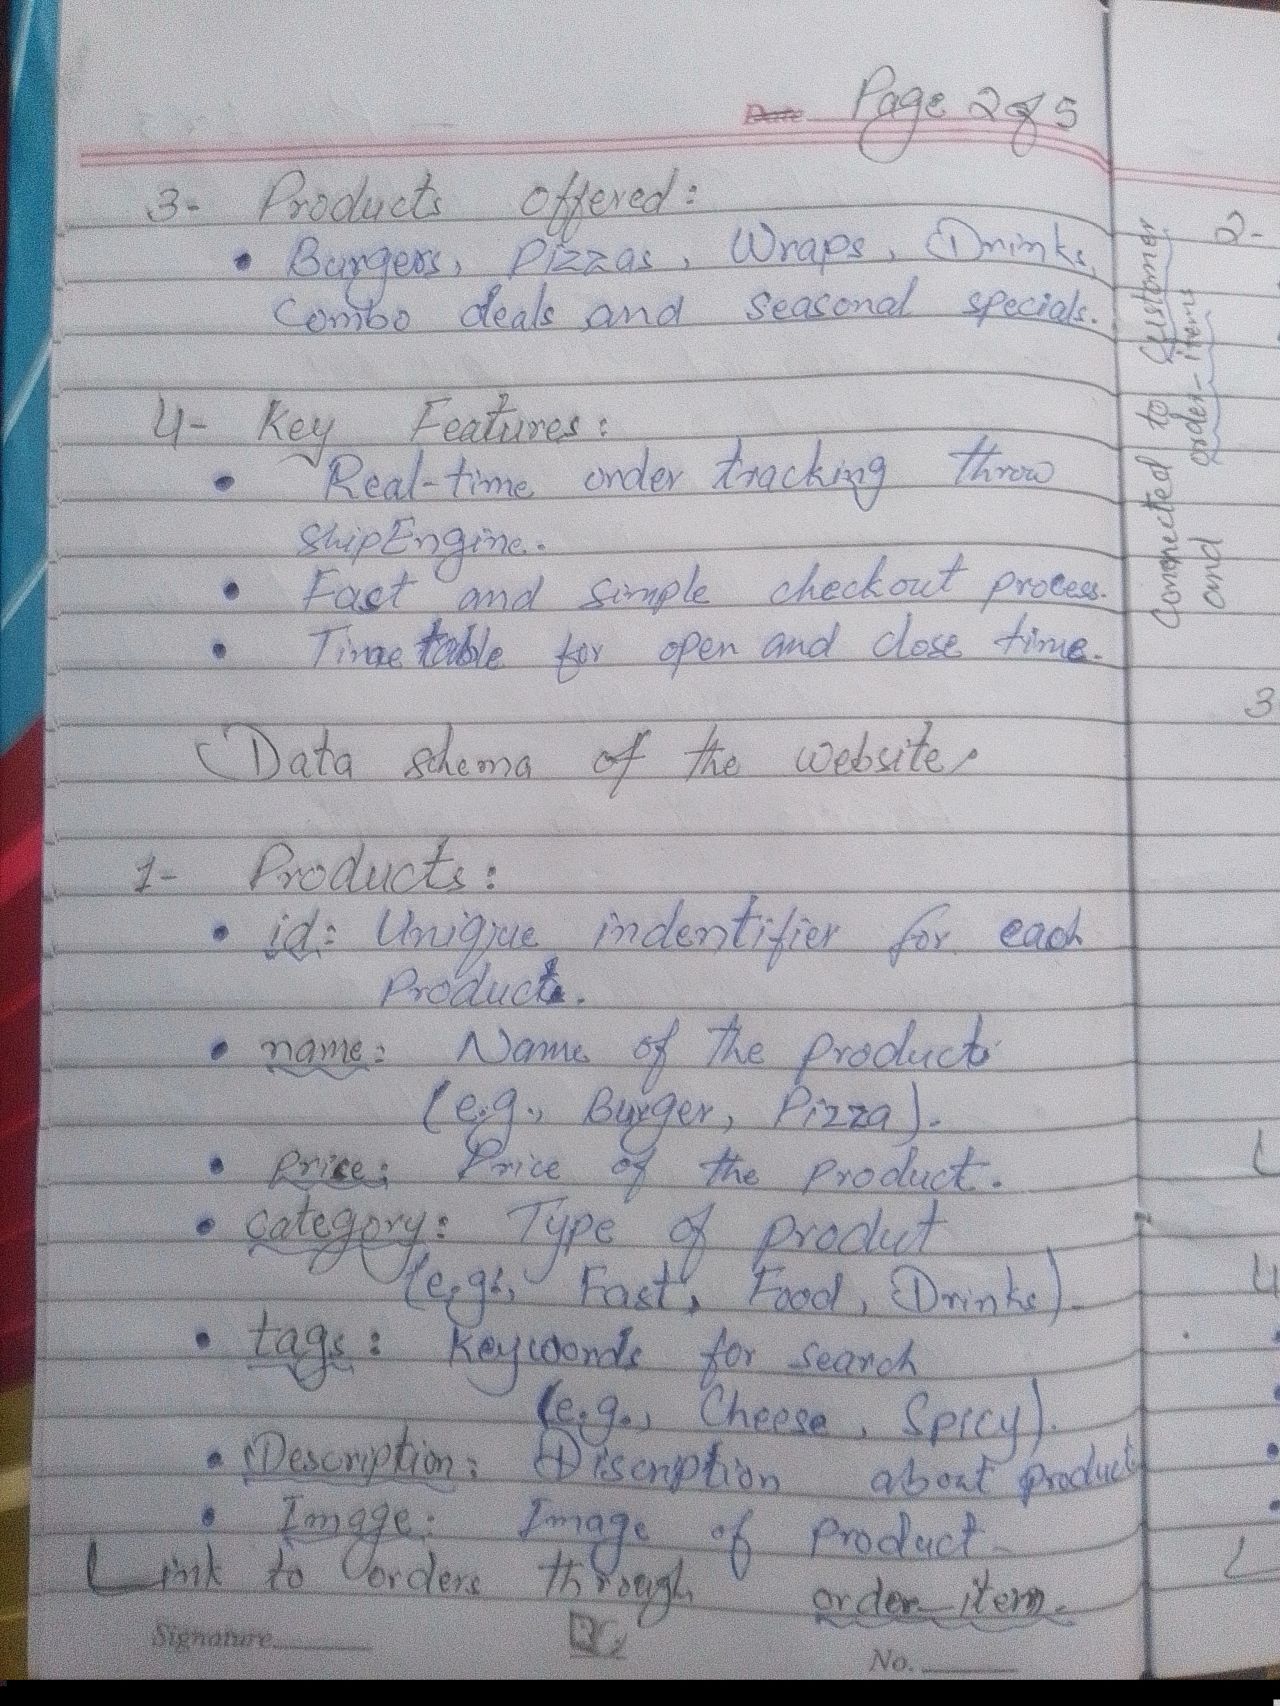 Date Page 2 of 5
3- Products offered:
• Burgers, Pizzas, Wraps, Drinks,
Combo deals and seasonal specials.
4- Key Features:
• Real-time order tracking throw
ShipEngine.
• Fast and simple checkout process.
• Time table for open and close time.
Data schema of the website.
1- Products:
• id: Unique indentifier for each
Product.
• name: Name of the product
(e.g., Burger, Pizza).
• Price: Price of the product.
• category: Type of product
(e.g., Fast, Food, Drinks).
• tags: Keywords for search
(e.g., Cheese, Spicy).
• Description: Discription about product
• Image: Image of product
Link to orders through order-item.
Signature
No.
Connected to Customer
and order-items
2-
3
4